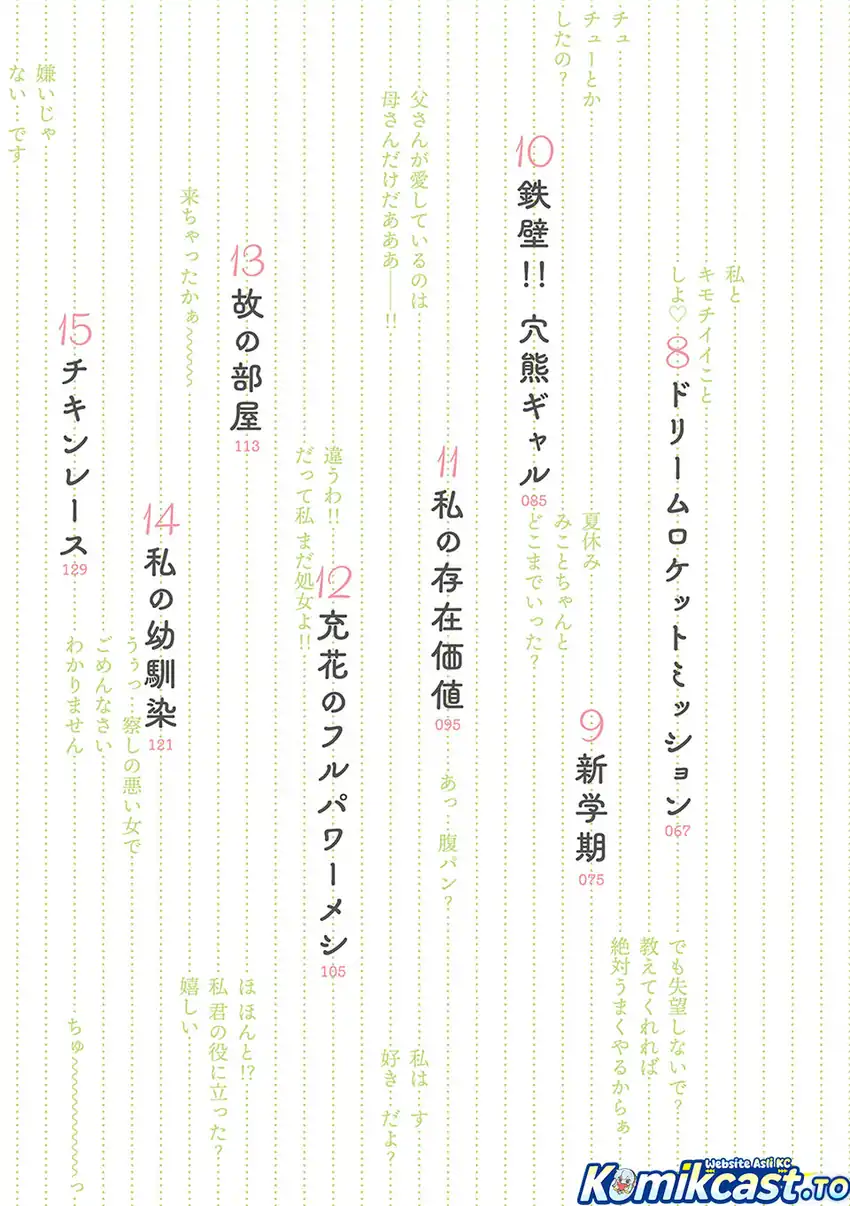 チュ…
チューとか
したの?
私と
キモチイイこと
しよ♡
8
ドリームロケットミッション
067
でも失望しないで?
教えてくれれば
絶対うまくやるからぁ
9
新学期
075
10
鉄壁!! 穴熊ギャル
085
夏休み
みことちゃんと
どこまでいった?
父さんが愛しているのは
母さんだけだあああ――!!
11
私の存在価値
095
あっ…腹パン?
私は…す
好き…だよ?
違うわ!!
だって私 まだ処女よ!!
12
充花のフルパワーメシ
105
来ちゃったかぁ〜〜〜〜
13
故の部屋
113
ほ ほんと!?
私 君の役に立った?
嬉しい
14
私の幼馴染
121
うぅっ…察しの悪い女で
ごめんなさい
わかりません
嫌いじゃ
ない…です
15
チキンレース
129
ちゅ〜〜〜〜〜〜〜っ
Website Asli KC
Komikcast.TO